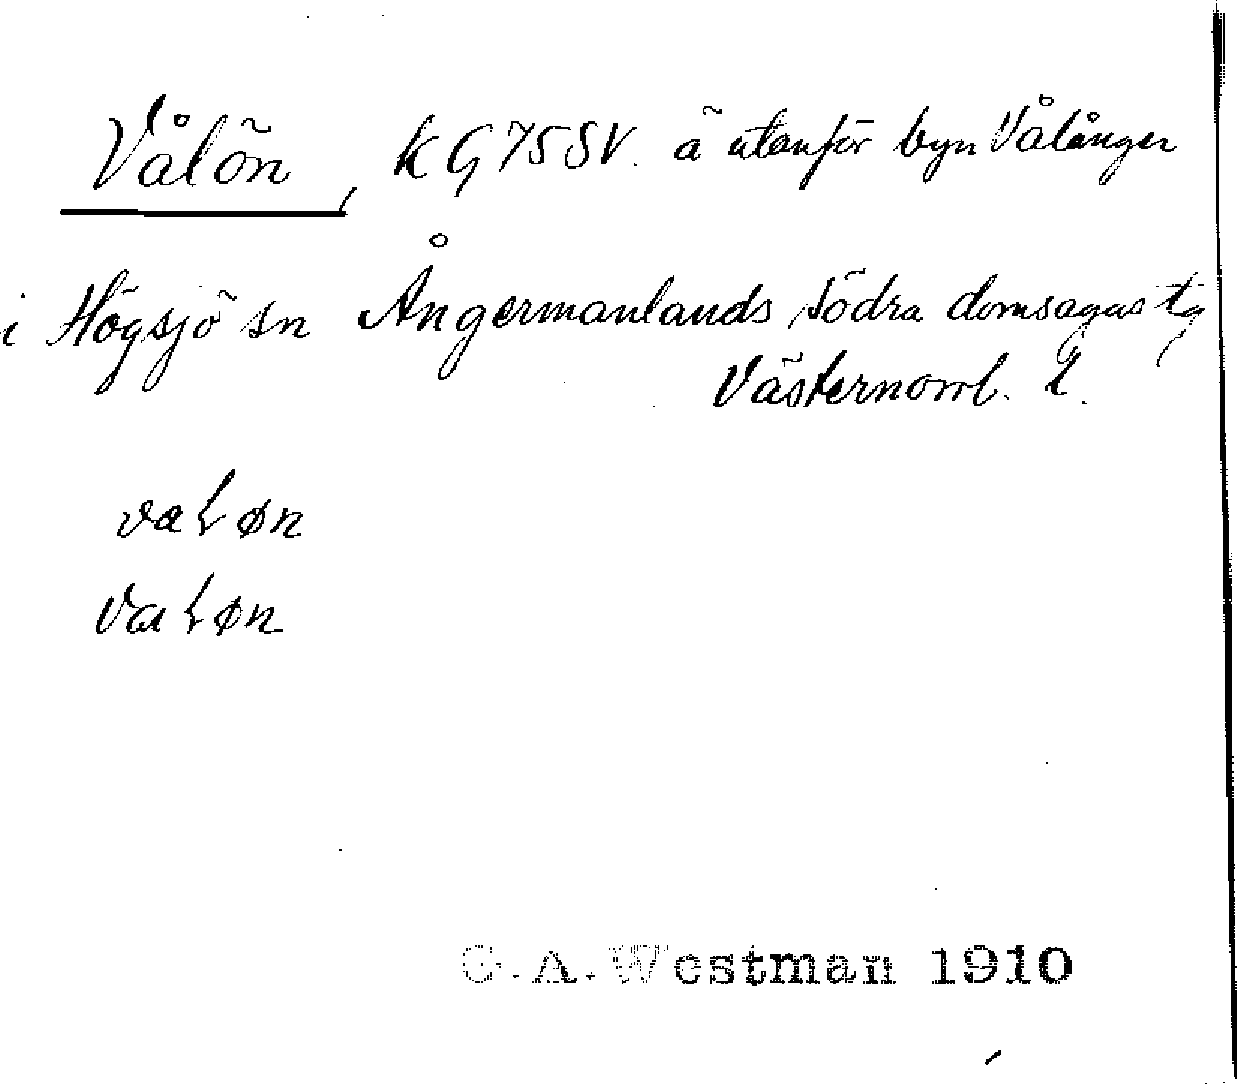 Vålön, KG75SV. ö utanför byn Vålånger
i Högsjö sn Ångermanlands södra domsagas tg
Västernorrl. l.
valøn
Valøn
G. A. Westman 1910